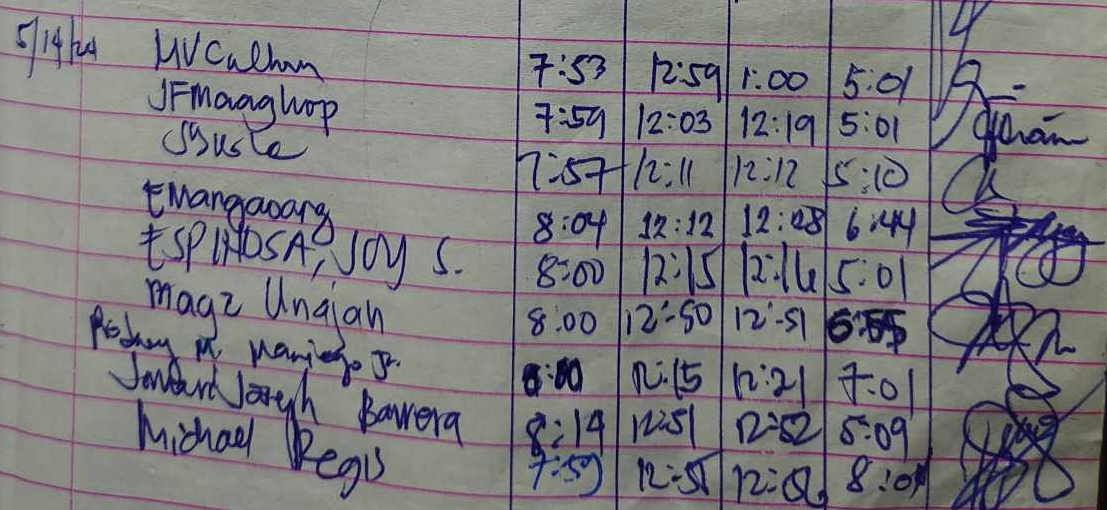 5/14/24 MVCalhun 7:53 12:59 1:00 5:01
JFMaaghop 7:59 12:03 12:19 5:01
7:57 12:11 12:12 5:10
EMangaoang 8:04 12:12 12:28 6:44
ESPINOSA, JOY S. 8:00 12:15 12:16 5:01
Magz Unajan 8:00 12:50 12:51
Rodney M. Maniego Jr. 12:15 12:21 7:01
Joseph Barrera 8:14 12:51 12:52 5:09
Michael Regis 7:59 12:55 12:56 8:01